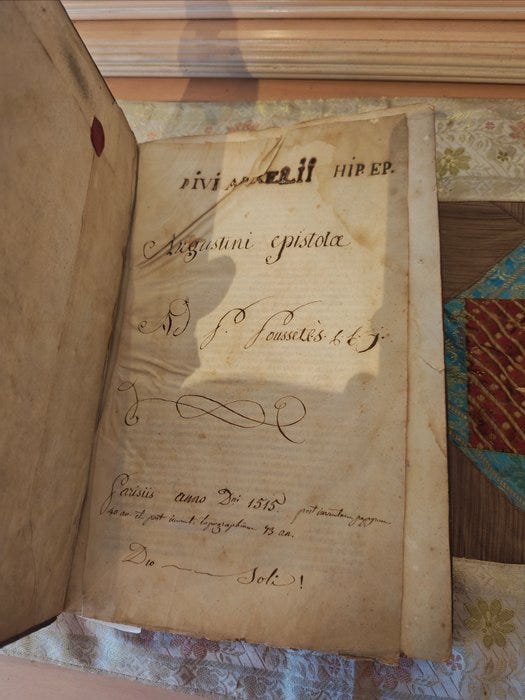 DIVI AURELII HIP. EP.
Augustini epistolæ
Ad P. Poussetès
Parisiis anno Dni 1515 post inventam
40 an. et post invent. typographiam 75 an.
Deo —— Soli !